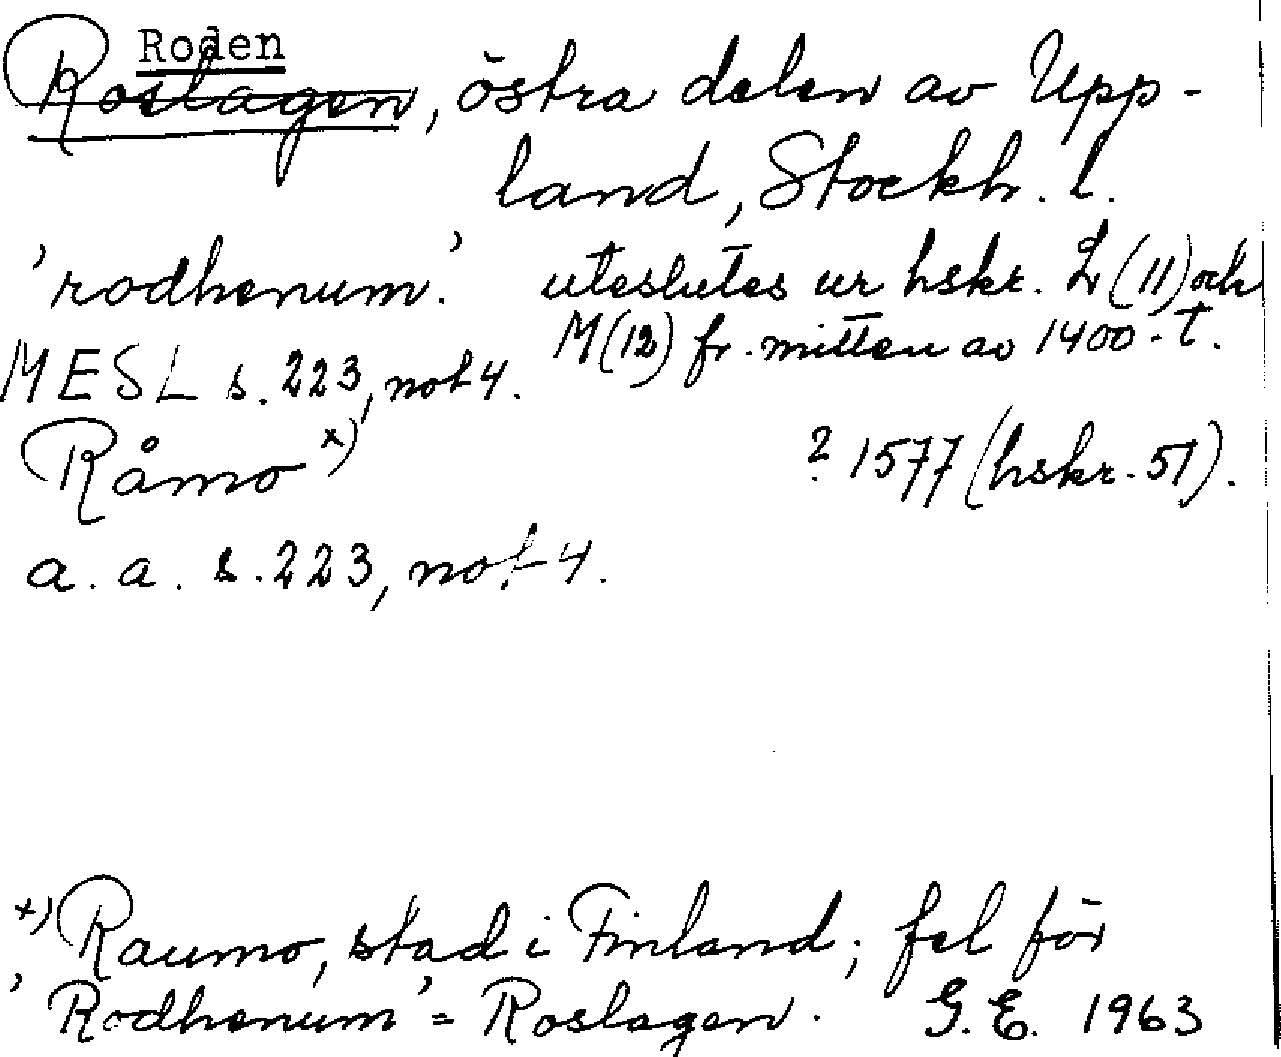 Roden
Roslagen, östra delen av Upp-
land, Stockh. l.
'rodhenum.' uteslutes ur hskr. L (11) och
M (12) fr. mitten av 1400-t.
MESL s. 223, not 4.
Råmo x) ? 1577 (hskr. 51).
a. a. s. 223, not 4.
x) Raumo, stad i Finland; fel för
'Rodhenum' = Roslagen. G. E. 1963